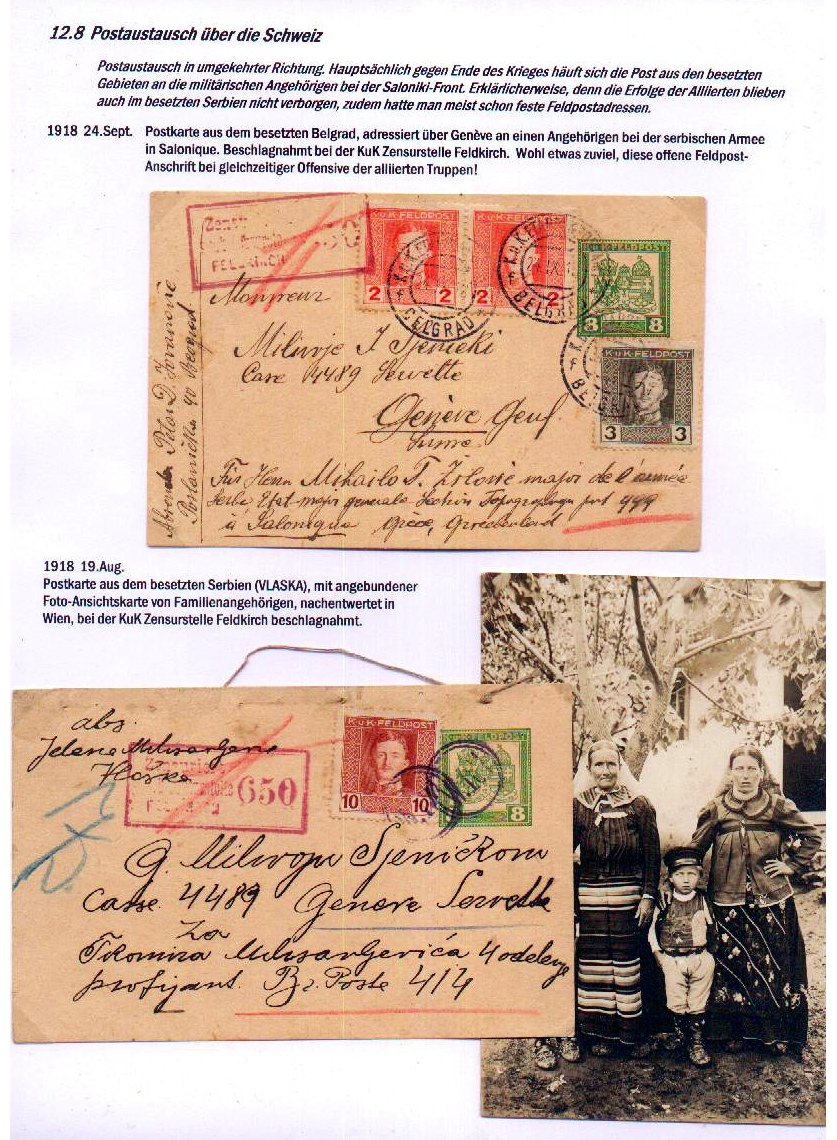 12.8 Postaustausch über die Schweiz
Postaustausch in umgekehrter Richtung. Hauptsächlich gegen Ende des Krieges häuft sich die Post aus den besetzten
Gebieten an die militärischen Angehörigen bei der Saloniki-Front. Erklärlicherweise, denn die Erfolge der Alliierten blieben
auch im besetzten Serbien nicht verborgen, zudem hatte man meist schon feste Feldpostadressen.
1918 24.Sept. Postkarte aus dem besetzten Belgrad, adressiert über Genève an einen Angehörigen bei der serbischen Armee
in Salonique. Beschlagnahmt bei der KuK Zensurstelle Feldkirch. Wohl etwas zuviel, diese offene Feldpost-
Anschrift bei gleichzeitiger Offensive der alliierten Truppen!
FELDKIRCH
K.u.K.FELDPOST
2 2
K.u.K.FELDPOST
2 2
K.u.K.FELDPOST
8 8
BELGRAD
BELGRAD
K.u.K.FELDPOST
3 3
Monsieur
Milivoje J Sjenicki
Case 4489 Servette
Genève Genf
Suisse
Für Herrn Mihailo T. major de l'armée
Serbe Etat major generale Section 999
à Salonique Grèce, Griechenland
1918 19.Aug.
Postkarte aus dem besetzten Serbien (VLASKA), mit angebundener
Foto-Ansichtskarte von Familienangehörigen, nachentwertet in
Wien, bei der KuK Zensurstelle Feldkirch beschlagnahmt.
abs.
Jelena
Vlaška
650
K.u.K.FELDPOST
10 10
K.u.K.FELDPOST
8
G. Milivoju Sjeničkom
Casse 4489 Geneve Servette
Za
Milisavljevića 4 odelenje
profijant. Br. Poste 414